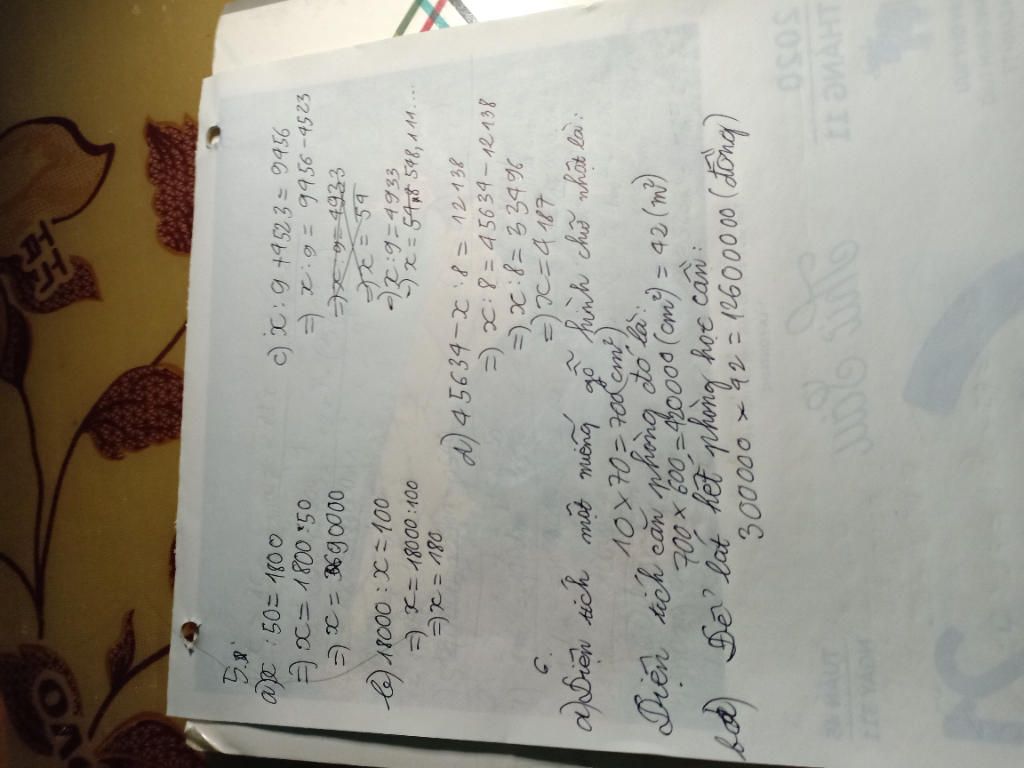 5.
a) x : 50 = 1800
=) x = 1800 . 50
=) x = 90000
b) 18000 : x = 100
=) x = 18000 : 100
=) x = 180
c) x : 9 + 4523 = 9456
=) x : 9 = 9456 - 4523
=) x : 9 = 4933
=) x = 54
=) x : 9 = 4933
=) x = 548,111...
d) 45634 - x : 8 = 12138
=) x : 8 = 45634 - 12138
=) x : 8 = 33496
=) x = 4187
6.
a) Diện tích một miếng gỗ hình chữ nhật là:
10 x 70 = 700 (cm²)
Diện tích căn phòng đó là:
700 x 600 = 420000 (cm²) = 42 (m²)
b) Để lát hết phòng học cần:
300000 x 42 = 12600000 (đồng)
THÁNG 11
2020
Thứ Sáu
TUẦN
NGÀY